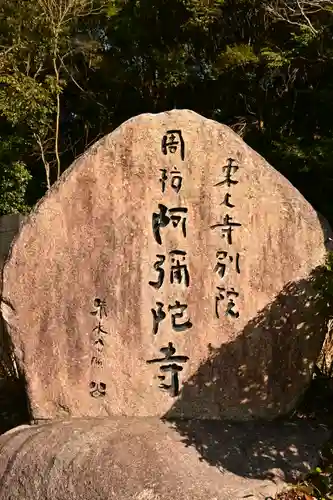 東大寺別院
周防阿弥陀寺